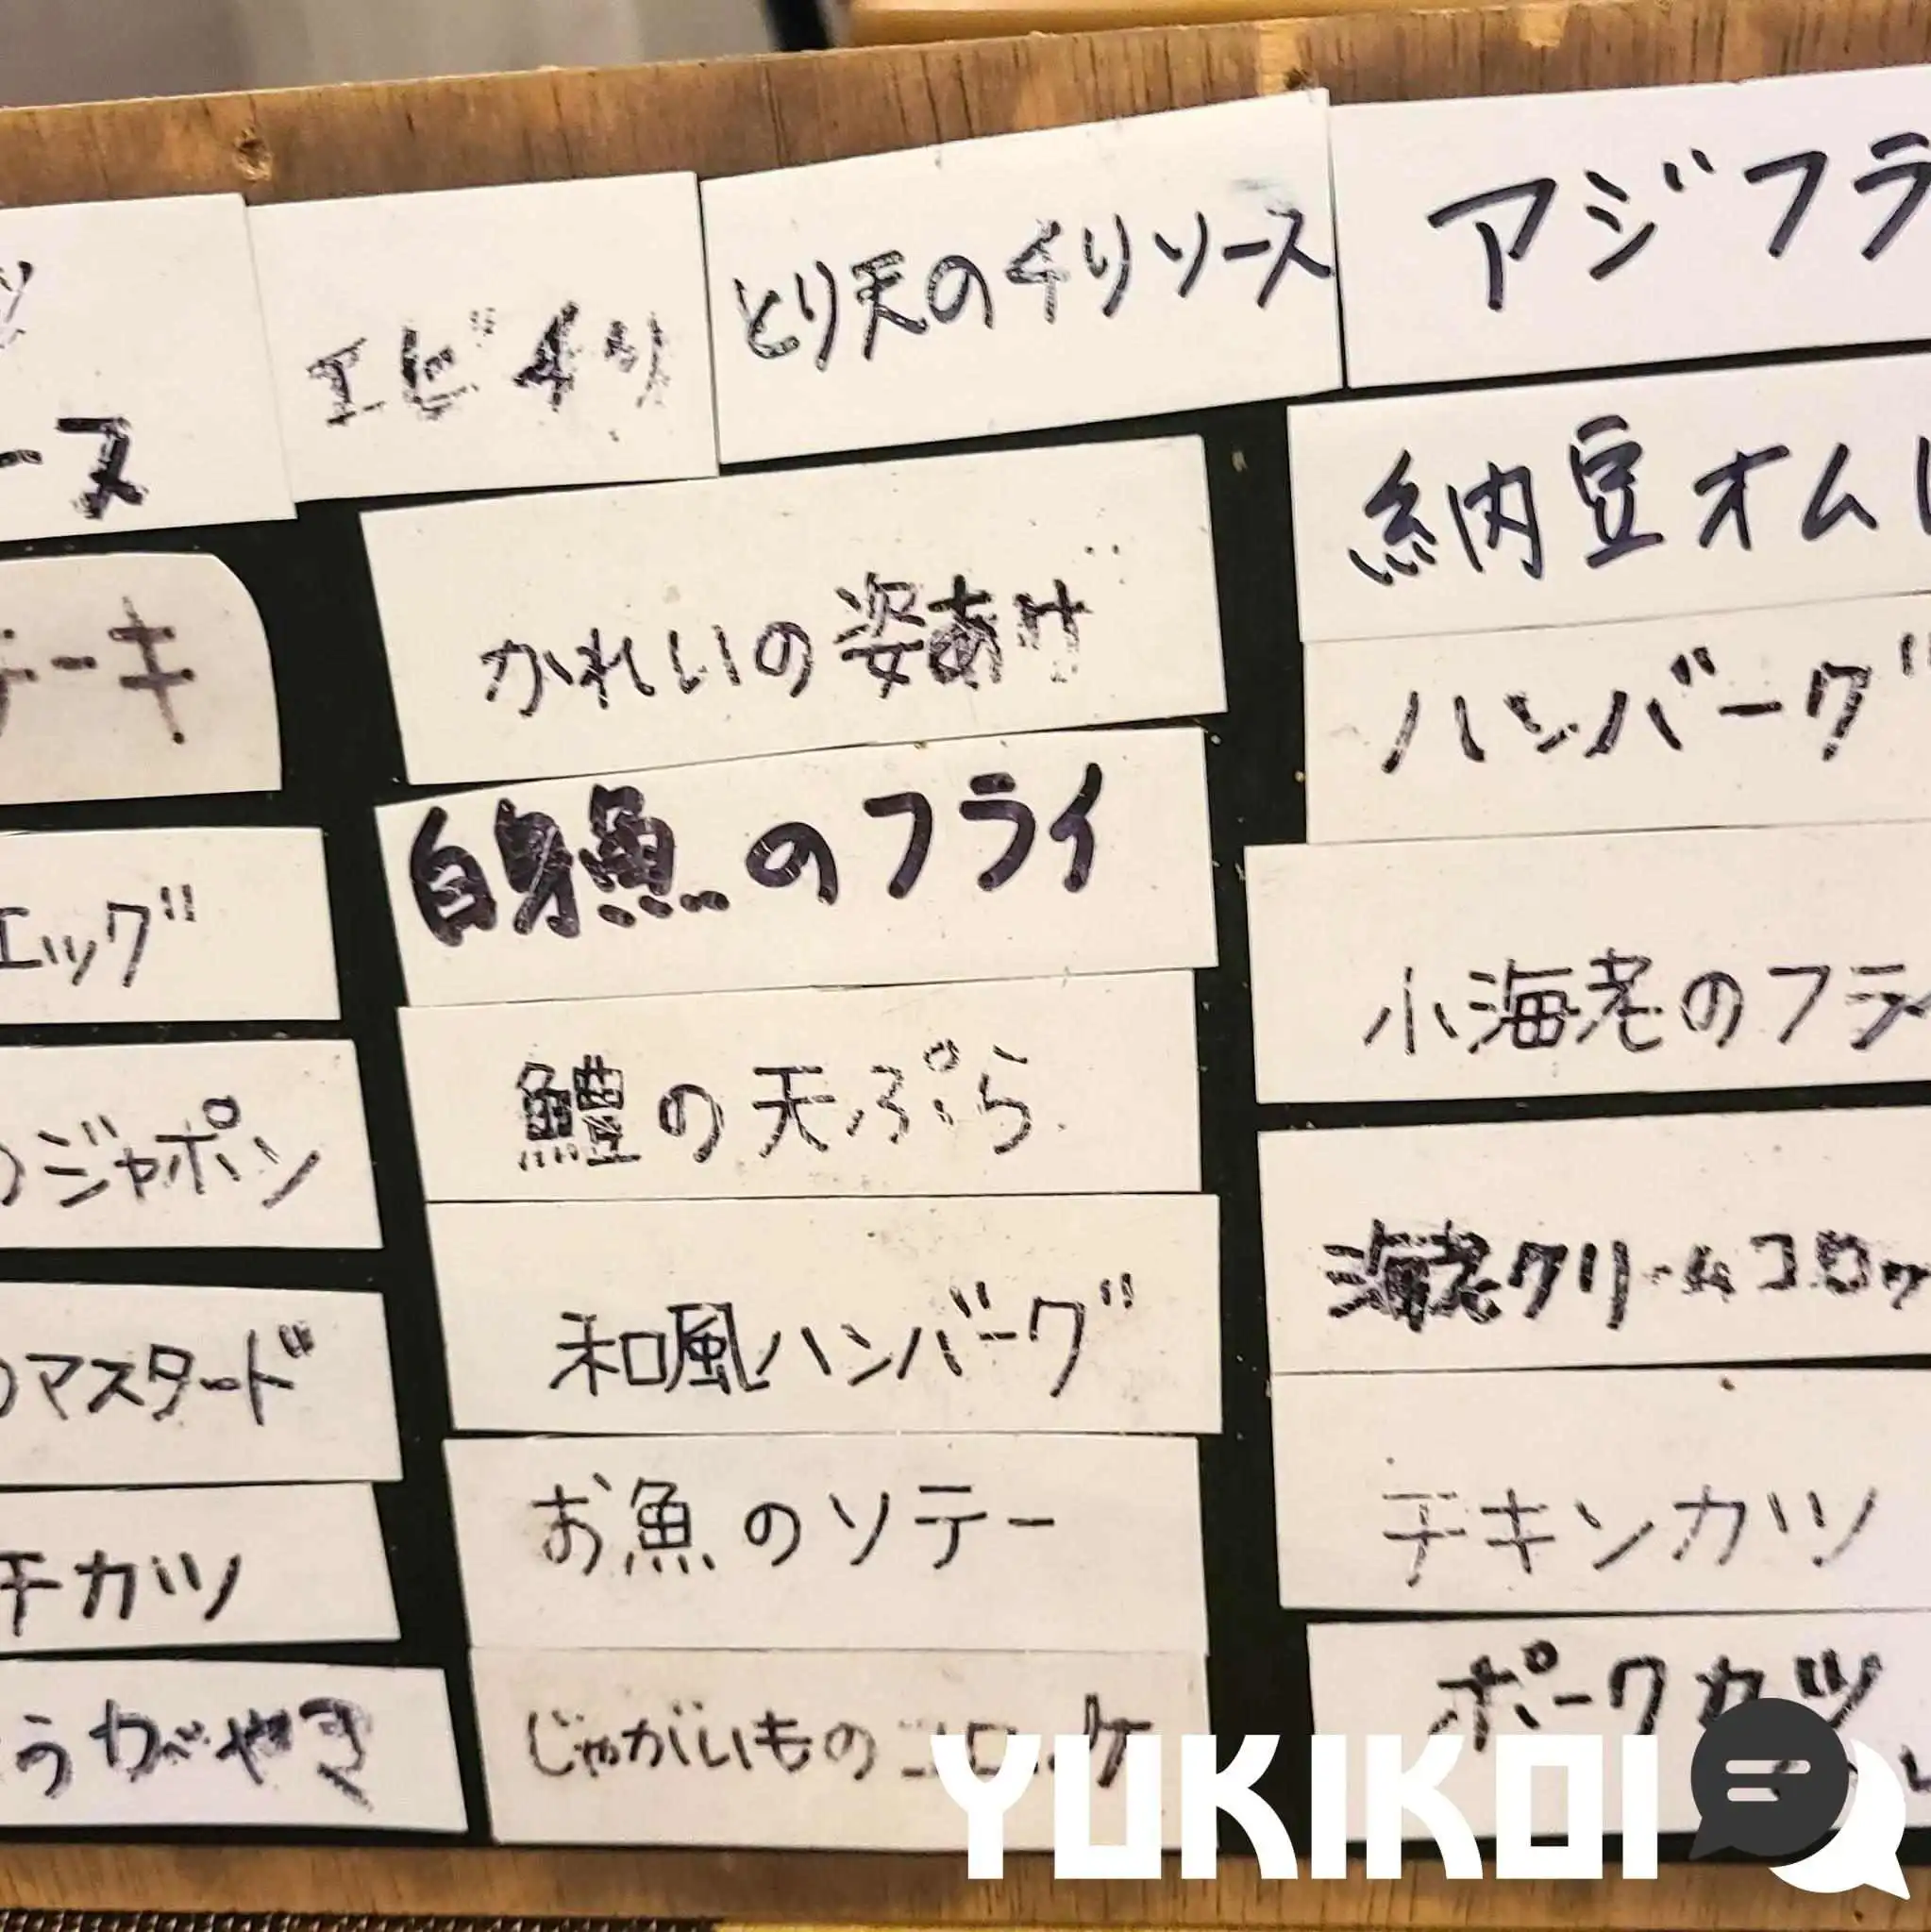 ツ
ース
ーキ
エッグ
のジャポン
のマスタード
チカツ
うがやき
エビチリ
とり天のチリソース
かれいの姿あげ
白身魚のフライ
鱧の天ぷら
和風ハンバーグ
お魚のソテー
じゃがいものコロッケ
アジフラ
納豆オムレ
ハンバーグ
小海老のフライ
海老クリームコロッ
チキンカツ
ポークカツ
YUKIKOI